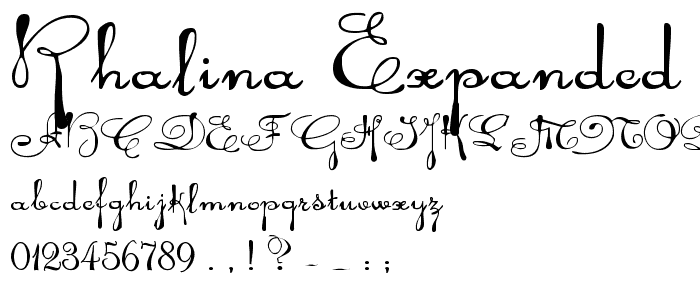 Rhalina Expanded
ABCDEFGHIJKLMNOP
abcdefghijklmnopqrstuvwxyz
0123456789 . , ! ? - _ : ;